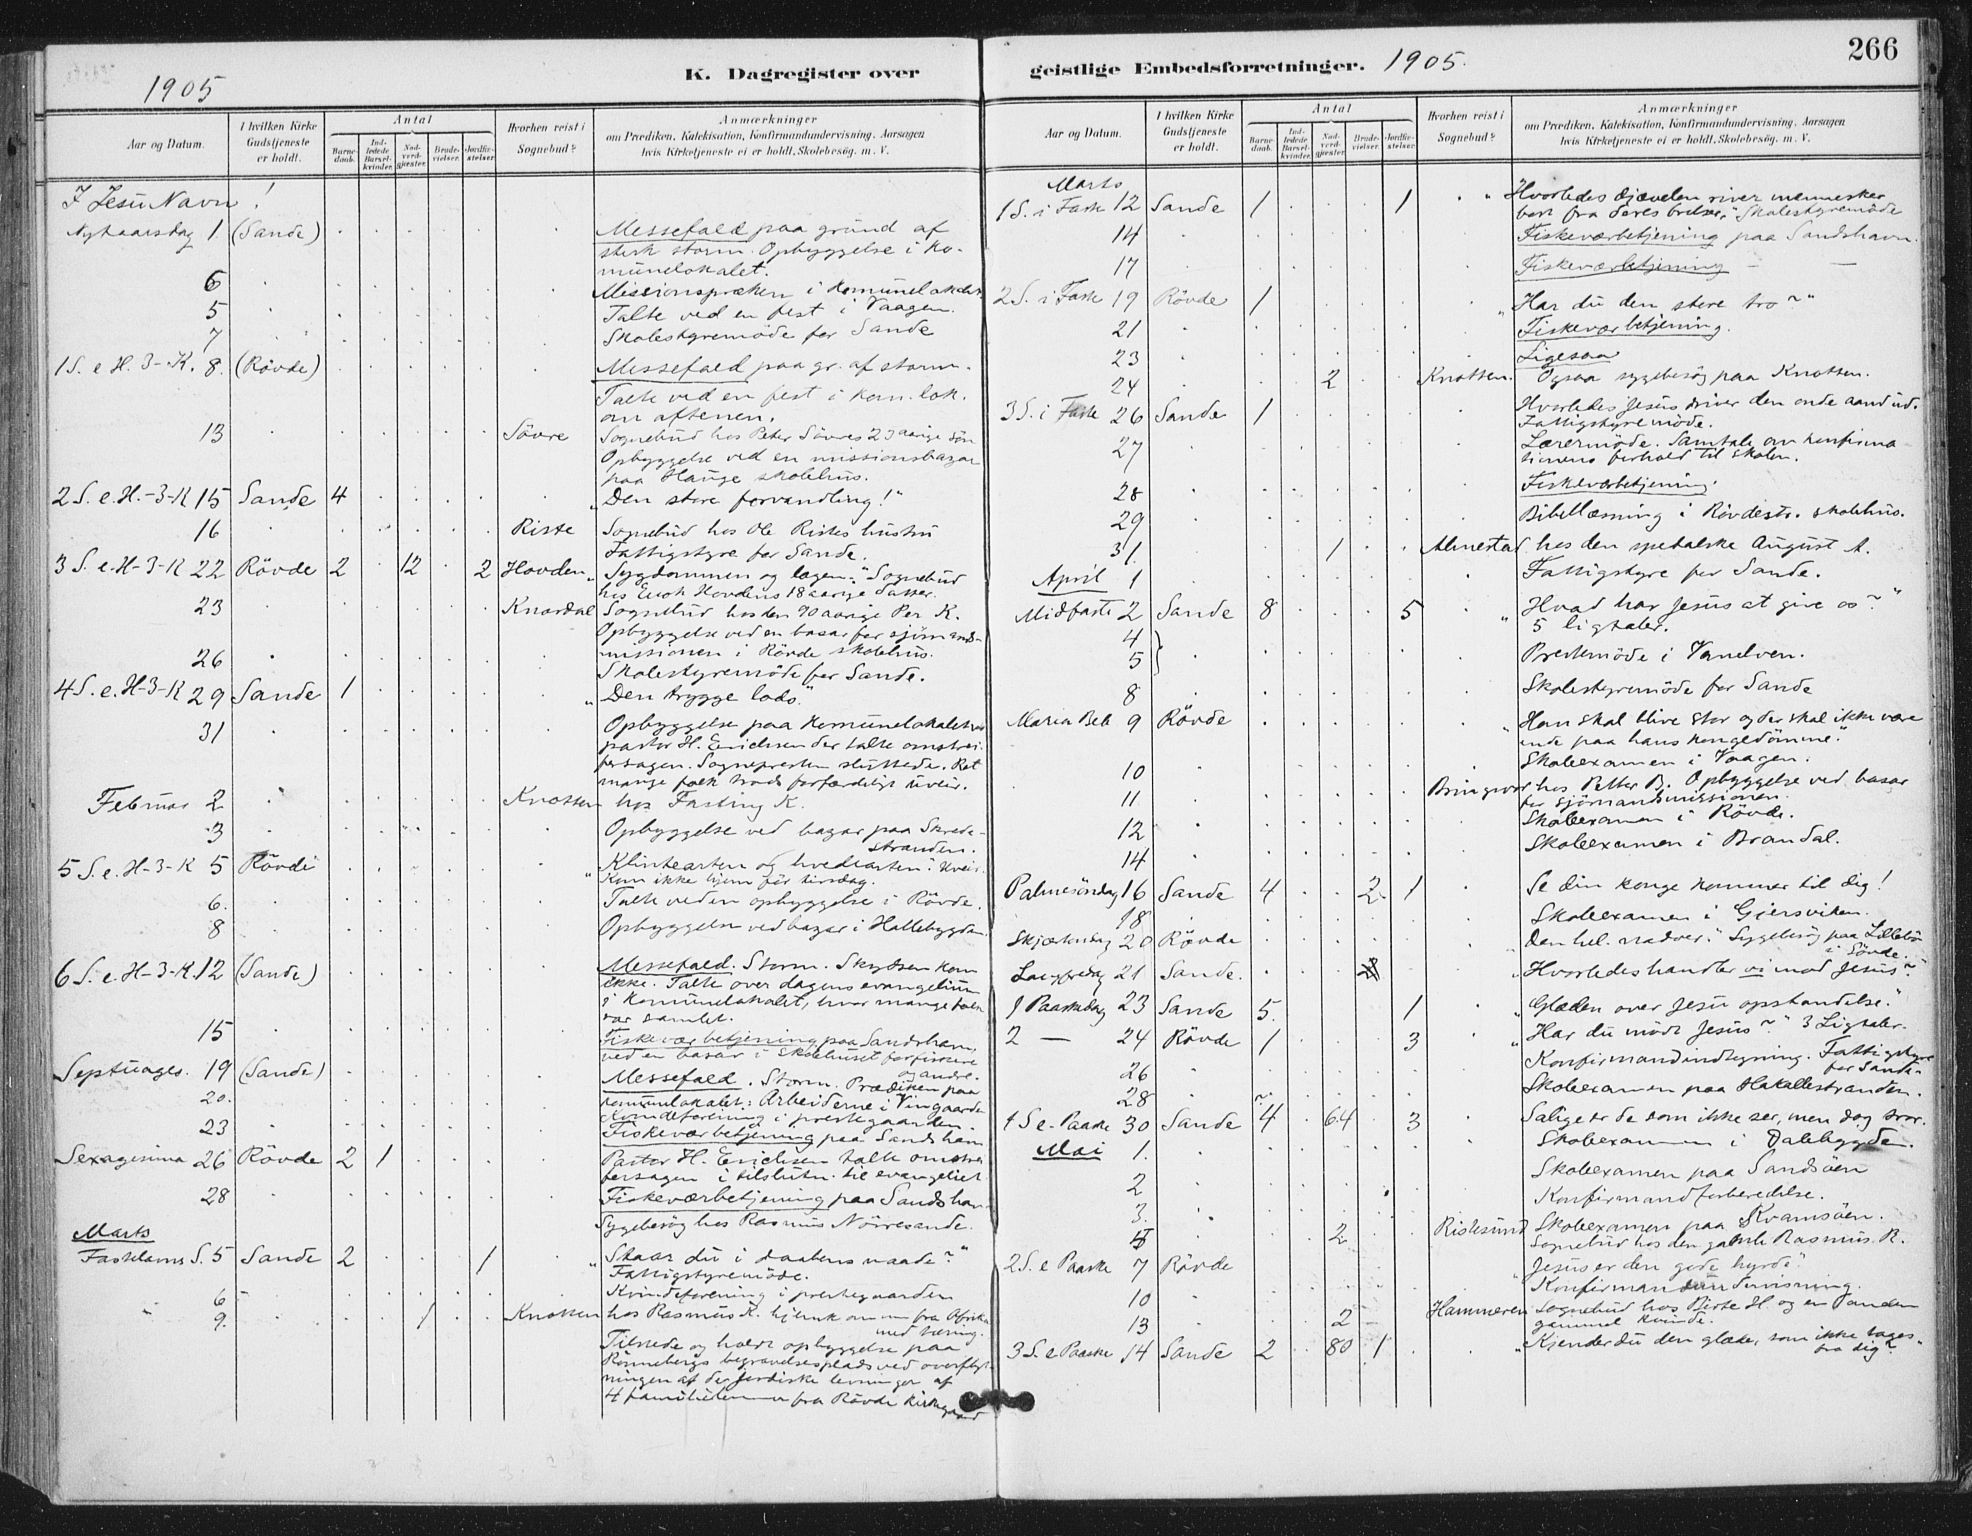 1905
K. Dagregister over
Aar og Datum.
I hvilken Kirke Gudstjeneste er holdt.
Antal
Barnedaab.
Indledede Barselkvinder.
Nadverdgjester.
Brudevielser.
Jordfæstelser.
Hvorhen reist i Sognebud?
Anmærkninger
om Prædiken, Katekisation, Konfirmandundervisning, Aarsagen
hvis Kirketjeneste ei er holdt, Skolebesøg. m. V.
I Jesu Navn!
Nytaarsdag 1 (Sande) Messefald paa grund af
sterk storm. Opbyggelse i ko-
munelokalet.
6 Missionspræken i Komunelokalet.
5 Talte ved en fest i Vaagen.
7 Skolestyremöde for Sande
1 S. e H. 3-K. 8 (Rövde) Messefald paa gr. af storm.
Talte ved en fest i kom. lok.
om aftenen.
13 Sövre Sognebud hos Peter Sövres 23 aarige sön
Opbyggelse ved en missionsbazar
paa Hauge skolehus.
2 S. e. H.-3-K 15 Sande 4 "Den store forvandling!"
16 Riste Sognebud hos Ole Ristes hustru
Fattigstyre for Sande.
3 S. e-H-3-K 22 Rövde 2 12 2 Hovden "Sygdommen og lægen." Sognebud
hos Hovdens 18 aarige datter.
23 Knardal Sognebud hos den 90 aarige Per K.
Opbyggelse ved en basar for sjömands-
missionen i Rövde skolehus.
26 Skolestyremöde for Sande.
4 S. e. H-3-K 29 Sande 1 "Den trygge lods."
31 Opbyggelse paa Komunelokalet ved
pastor H. Erichsen der talte om strei-
fersagen. Sognepresten sluttede. Ret
mange folk trods forfærdeligt uveir.
Februar 2 Knotten hos Fasting K.
3 Opbyggelse ved bazar paa Skrede-
stranden.
5 S. e. H-3-K 5 Rövde "Klintearten og hvedearten". Uveir.
Kom ikke hjem för tirsdag.
6. Talte ved en opbyggelse i Rövde.
8 Opbyggelse ved bazar i Hallebygden
6 S. e-H-3-K. 12 (Sande) Messefald. Storm. Skydsen kom
ikke. Talte over dagens evangelium
i Komunelokalet, hvor mange folk
var samlet.
15 Fiskeværbetjening paa Sandshavn
ved en basar i skolehuset for fiskere
og andre.
Septuages. 19 (Sande) Messefald. Storm. Prædiken paa
komunelokalet: Arbeiderne i Vingaarden
20. Kvindeforening i prestegaarden.
23 Fiskeværbetjening paa Sandshavn
Sexagesima 26 Rövde 2 1 Pastor H. Erichsen talte om strei-
fersagen i tilslutn. til evangeliet
28 Fiskeværbetjening paa Sandshavn
Sygebesög hos Rasmus Nörresande.
Marts
Fastelavns S. 5 Sande 2 1 "Staar du i daabens naade?"
Fattigstyremöde.
6 Kvindeforening i prestegaarden
9. 1 Knotten hos Rasmus K. hjemkommen fra Afrika
med tæring.
Tilstede og holdt opbyggelse paa
Rönnebergs begravelsesplads ved overflyt-
ningen af de jordiske levninger af
4 familielemmer fra Rövde kirkegaard
geistlige Embedsforretninger. 1905.
266
Aar og Datum.
I hvilken Kirke Gudstjeneste er holdt.
Antal
Barnedaab.
Indledede Barselkvinder.
Nadverdgjester.
Brudevielser.
Jordfæstelser.
Hvorhen reist i Sognebud?
Anmærkninger
om Prædiken, Katekisation, Konfirmandundervisning, Aarsagen
hvis Kirketjeneste ei er holdt, Skolebesøg. m. V.
Marts
1 S. i Faste 12 Sande 1 1 "Hvorledes djævelen river mennesker
bort fra deres frelser." Skolestyremöde
14 Fiskeværbetjening paa Sandshavn.
17 Fiskeværbetjening — —
2 S. i Faste 19 Rövde 1 "Har du den store tro?"
21 Fiskeværbetjening.
23 Ligesaa
24 2 Knotten. Ogsaa sygebesög paa Knotten.
3 S. i Faste 26 Sande 1 Hvorledes Jesus driver den onde aand ud.
Fattigstyremöde.
27 Lærermöde. Samtale om konfirma
tionens forhold til skolen.
28 Fiskeværbetjening.
29 Bibellæsning i Rövdestr. skolehus.
31. 1 Almestad hos den spedalske August A.
April 1 Fattigstyre for Sande.
Midfaste 2 Sande 8 5 "Hvad har Jesus at give os?"
5 ligtaler.
4
5 } Prestemöde i Vanelven.
8 Skolestyremöde for Sande
Maria Beb 9 Rövde "Han skal blive stor og der skal ikke være
ende paa hans kongedömme."
10 Skoleexamen i Vaagen.
11. Bringsvor hos Petter B. Opbyggelse ved basar
for sjömandsmissionen.
12 Skoleexamen i Rövde.
14 Skoleexamen i Brandal.
Palmesöndag 16 Sande 4 2 1 Se din konge kommer til dig!
18 Skoleexamen i Gjersviken.
Skjærtorsdag 20 Rövde Den hel. nadver." Sygebesög paa Lillebö
i Sövde.
Langfredag 21 Sande. 2 "Hvorledes handler vi mod Jesus?"
1 Paaskedag 23 Sande 5. 1 "Glæden over Jesu opstandelse."
2 — 24 Rövde 1 3 "Har du mödt Jesus?" 3 Ligtaler.
26 Konfirmandindtegning. Fattigstyre
for Sande.
28 Skoleexamen paa Hakallestranden.
1 S e. Paaske 30 Sande 4 64 3 Salige er de som ikke ser, men dog tror.
Mai 1. Skoleexamen i Dalebygde.
2 Skoleexamen paa Sandsöen
Konfirmandforberedelse.
3. Skoleexamen paa Kvamsöen.
2 Ristesund Sognebud hos den gamle Rasmus R.
2 S. e Paaske 7 Rövde "Jesus er den gode hyrde."
10 Konfirmandundervisning.
13 2 Hammeren Sognebud hos Birte H. og en anden
gammel kvinde.
3 S. e Paaske 14 Sande 2 80 1 "Kjender du den glæde, som ikke tages
fra dig?"